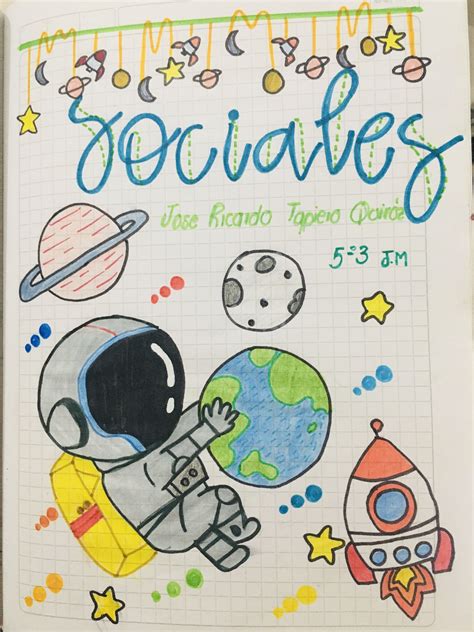 Sociales
Jose Ricardo Tapiero Quiroz
5=3 J.M